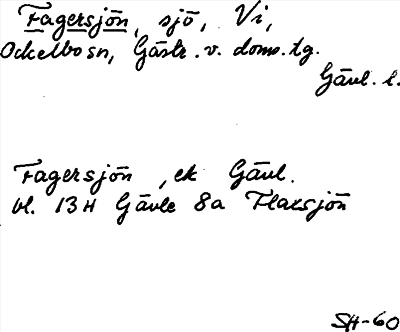 Fagersjön, sjö, Vi,
Ockelbo sn, Gästr. v. doms.tg.
Gävl. l.
Fagersjön, ek Gävl.
bl. 13H Gävle 8a Flaxsjön
SH-60